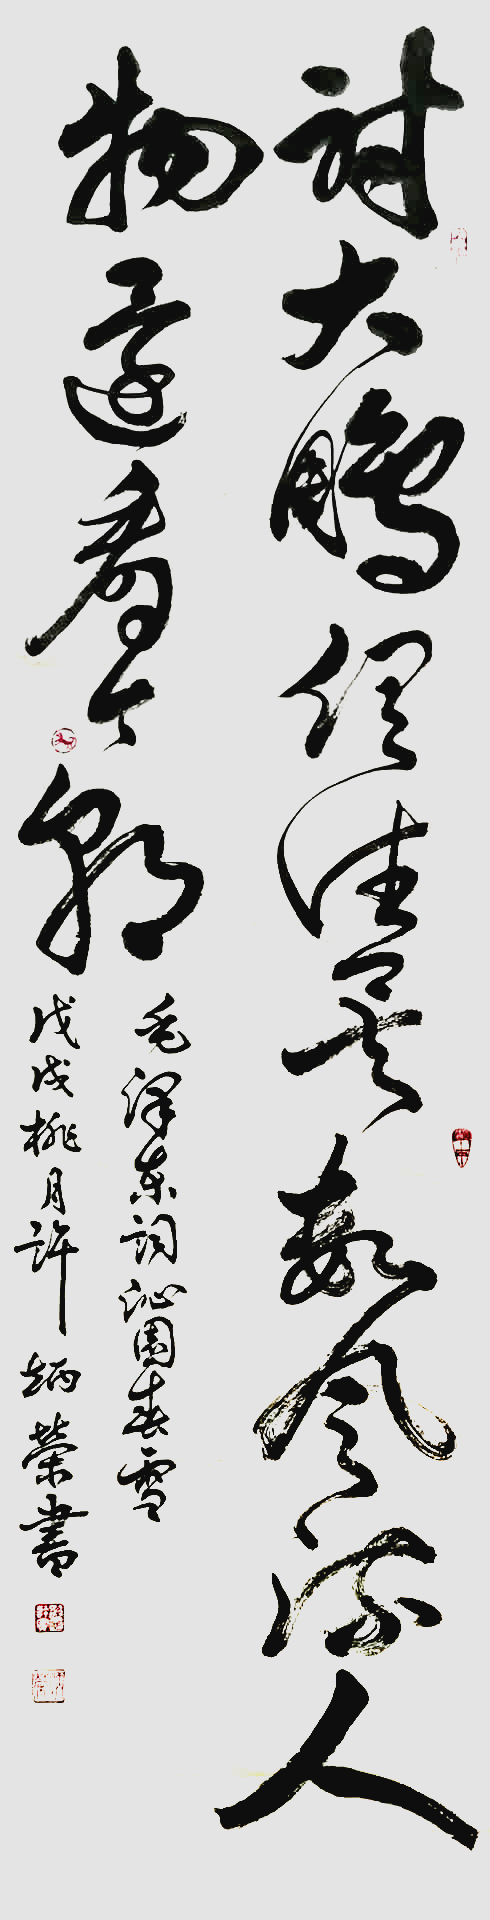 射大鵰俱往矣數风流人
物還看今朝
毛澤东詞沁園春雪
戊戌桃月許炳榮書